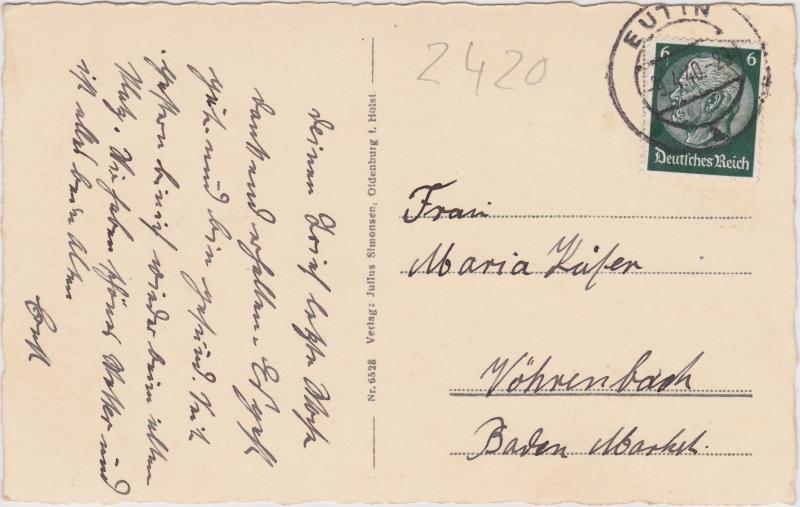 Deinen Brief letzte Woche
dankend erhalten. Es geht
gut und bin gesund. Seit
gestern bin ich wieder beim alten
Wir haben schönes Wetter und
ist alles beim Alten
Nr. 6528 Verlag: Julius Simonsen, Oldenburg i. Holst
2420
EUTIN
.4.40
6 6
Deutsches Reich
Frau
Maria
Vöhrenbach
Baden